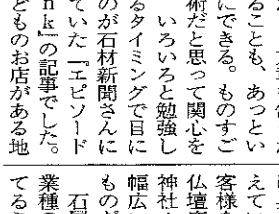 ることも、あっとい
にできる。ものすご
術だと思って関心を
いろいろと勉強し
るタイミングで目に
のが石材新聞さんに
ていた『エピソード
nk』の記事でした。
どものお店がある地
えてい
客様
仏壇
神社
幅広
ものが
石
業種の
てる